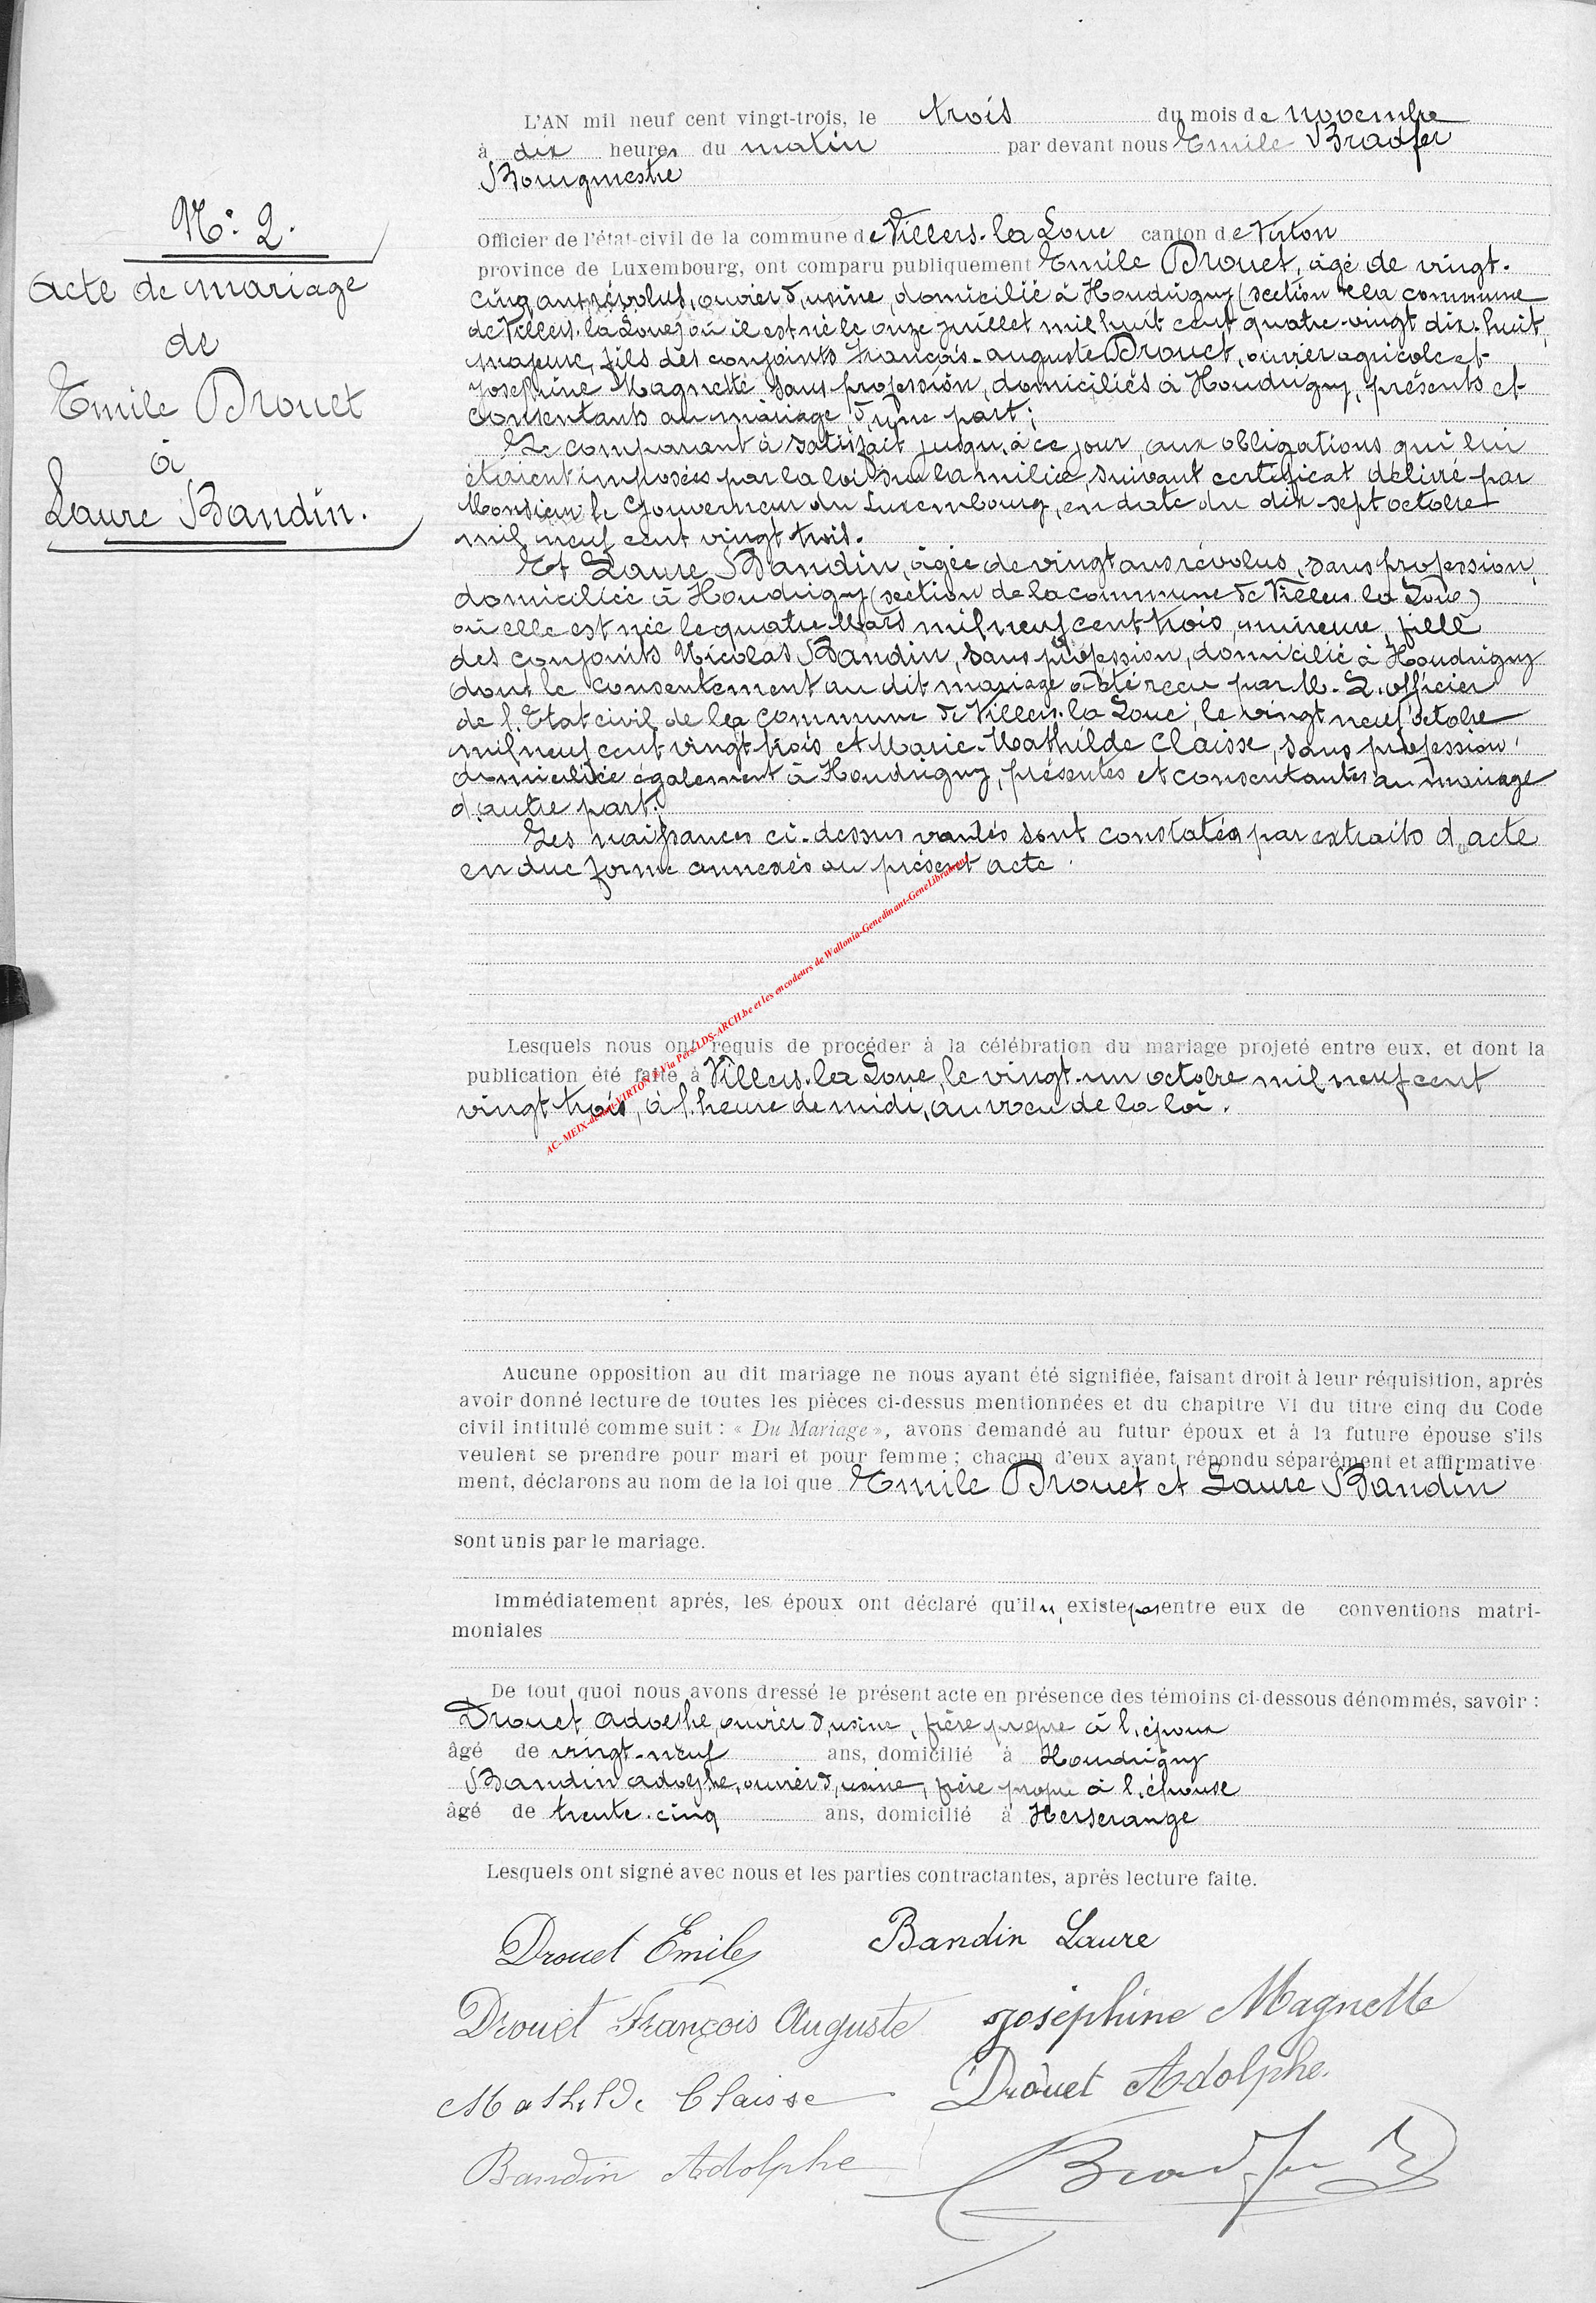 N° 2.
Acte de mariage
de
Emile Drouet
à
Laure Bandin.
L'AN mil neuf cent vingt-trois, le trois du mois de novembre
à dix heures du matin par devant nous Emile Bradfer
Bourgmestre
Officier de l'état-civil de la commune de Villers-la-Loue canton de Virton
province de Luxembourg, ont comparu publiquement Emile Drouet, âgé de vingt-
cinq ans révolus, ouvrier d'usine, domicilié à Houdrigny (section de la commune
de Villers-la-Loue) où il est né le onze juillet mil huit cent quatre-vingt dix-huit,
majeur, fils des conjoints François-Auguste Drouet, ouvrier agricole et
Joséphine Magnette sans profession, domiciliés à Houdrigny, présents et
consentants au mariage, d'une part;
Le comparant à satisfait jusqu'à ce jour, aux obligations qui lui
étaient imposées par la loi sur la milice, suivant certificat délivré par
Monsieur le Gouverneur du Luxembourg, en date du dix-sept octobre
mil neuf cent vingt trois.
Et Laure Bandin, âgée de vingt ans révolus, sans profession,
domiciliée à Houdrigny (section de la commune de Villers-la-Loue)
où elle est née le quatre Mars mil neuf cent trois, mineure, fille
des conjoints Nicolas Bandin, sans profession, domicilié à Houdrigny
dont le consentement au dit mariage a été reçu par M. L'officier
de l'Etat civil de la commune de Villers-la-Loue, le vingt neuf octobre
mil neuf cent vingt trois et Marie-Mathilde Claisse, sans profession,
domiciliée également à Houdrigny, présentes et consentantes au mariage
d'autre part.
Les naissances ci-dessus vantés sont constatées par extraits d'acte
en due forme annexés au présent acte.
AC- MEIX-devant-VIRTON - Via Pers-LDS-ARCH.be et les encodeurs de Wallonia-Genedinant-GeneLibramont
Lesquels nous ont requis de procéder à la célébration du mariage projeté entre eux, et dont la
publication été faite à Villers-la-Loue, le vingt-un octobre mil neuf cent
vingt trois, à l'heure de midi, au vœu de la loi.
Aucune opposition au dit mariage ne nous ayant été signifiée, faisant droit à leur réquisition, après
avoir donné lecture de toutes les pièces ci-dessus mentionnées et du chapitre VI du titre cinq du Code
civil intitulé comme suit : « Du Mariage », avons demandé au futur époux et à la future épouse s'ils
veulent se prendre pour mari et pour femme ; chacun d'eux ayant répondu séparément et affirmative
ment, déclarons au nom de la loi que Emile Drouet et Laure Bandin
sont unis par le mariage.
Immédiatement après, les époux ont déclaré qu'il n'existe pas entre eux de conventions matri-
moniales
De tout quoi nous avons dressé le présent acte en présence des témoins ci-dessous dénommés, savoir :
Drouet Adolphe, ouvrier d'usine, frère propre à l'époux
âgé de vingt-neuf ans, domicilié à Houdrigny
Bandin Adolphe, ouvrier d'usine, frère propre à l'épouse
âgé de trente-cinq ans, domicilié à Herserange
Lesquels ont signé avec nous et les parties contractantes, après lecture faite.
Drouet Emile Bandin Laure
Drouet François Auguste Joséphine Magnette
Mathilde Claisse Drouet Adolphe.
Bandin Adolphe Bradfer E